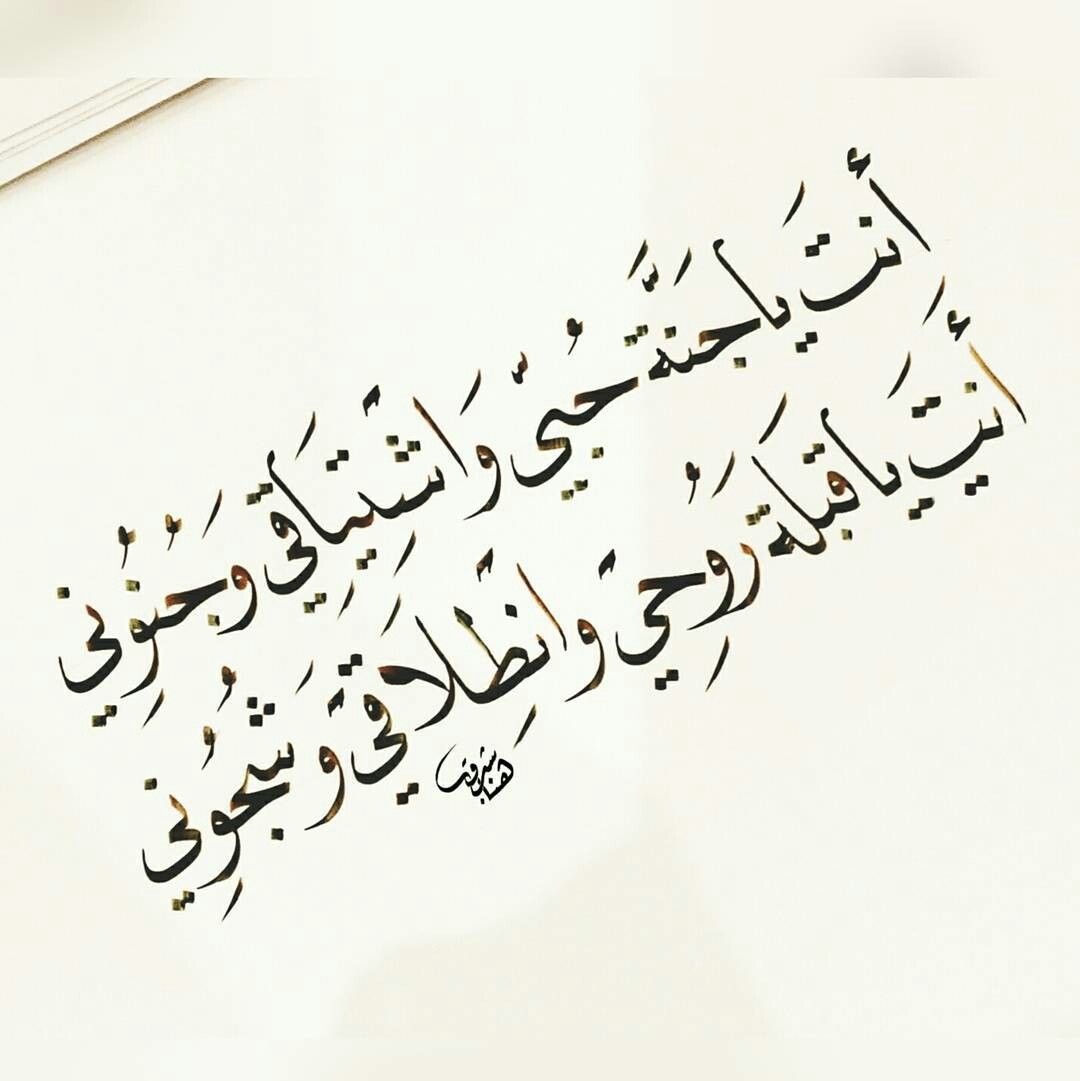 أَنتَ يَا جَنَّةَ حُبّي وَاشْتِيَاقي وَجُنُوني
أَنتَ يَا قبلَة رُوحيْ وَانْطِلَاقيْ وَشُجُوني